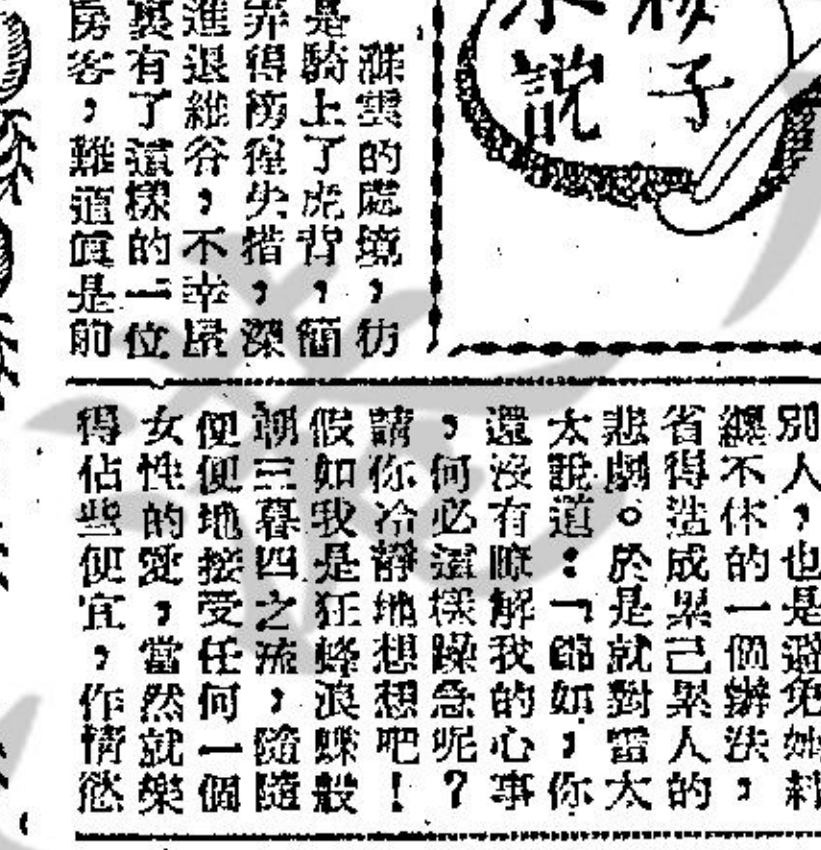 子
說
滌雲的處境，彷
是騎上了虎背，簡
弄得徬徨失措，深
進退維谷，不幸屋
裏有了這樣的一位
房客，難道眞是前
別人，也是避免她糾
纏不休的一個辦法，
省得造成累己累人的
悲劇。於是就對雷太
太說道：「錦如，你
還沒有瞭解我的心事
，何必這樣躁急呢？
請你冷靜地想想吧！
假如我是狂蜂浪蝶般
朝三暮四之流，隨隨
便便地接受任何一個
女性的愛，當然就樂
得佔些便宜，作情慾